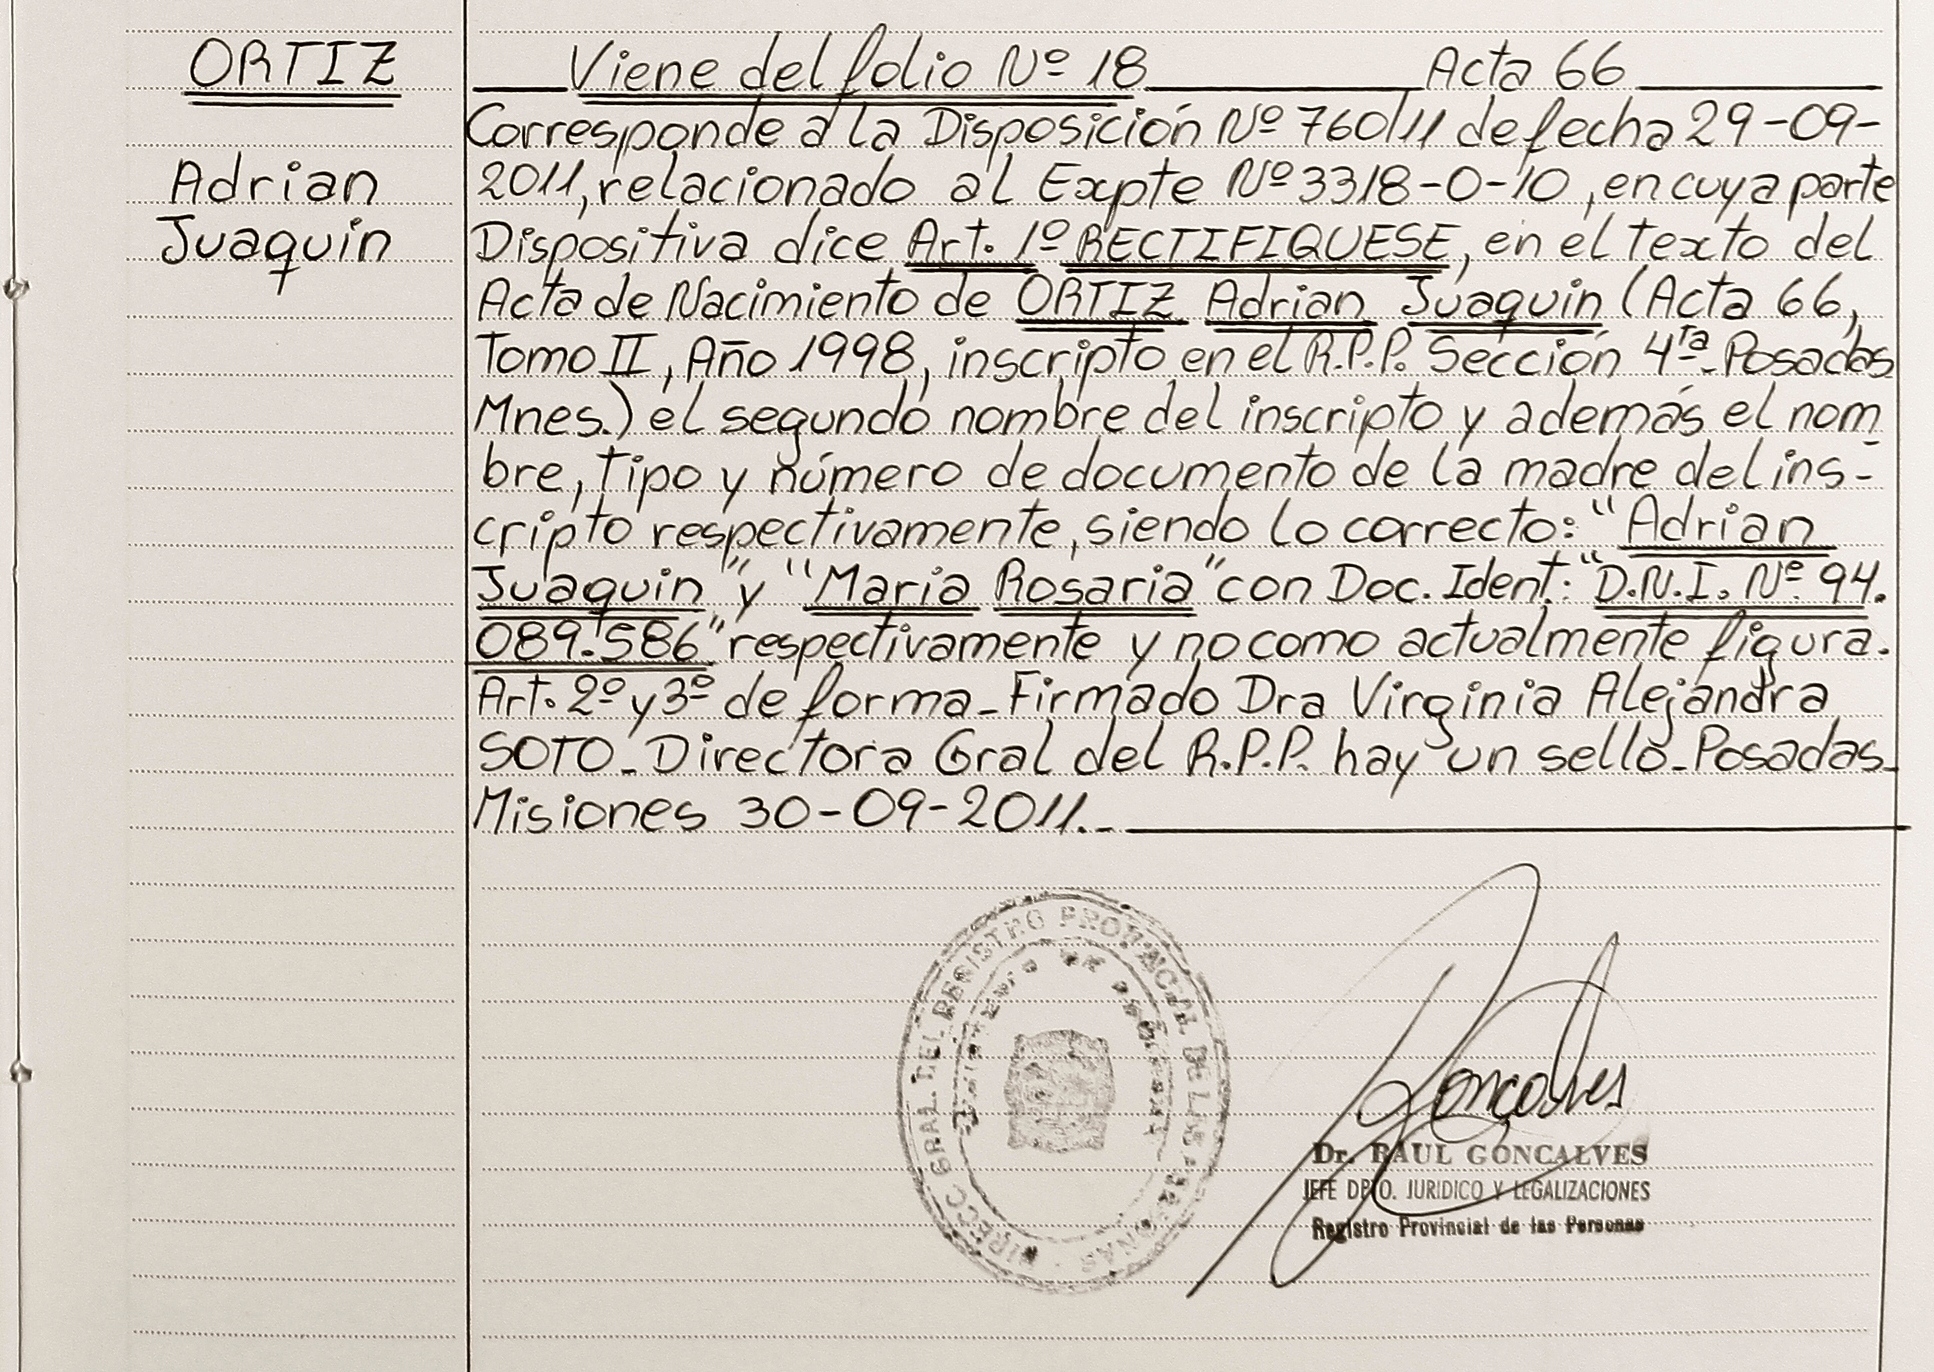 ORTIZ
Adrian
Juaquin
Viene del folio Nº 18 Acta 66
Corresponde a la Disposición Nº 760/11 de fecha 29-09-
2011, relacionado al Expte Nº 3318-0-10, en cuya parte
Dispositiva dice Art. 1º RECTIFIQUESE, en el texto del
Acta de Nacimiento de ORTIZ Adrian Juaquin (Acta 66,
Tomo II, Año 1998, inscripto en el R.P.P. Sección 4ta-Posadas
Mnes.) el segundo nombre del inscripto y además el nom
bre, tipo y número de documento de la madre del ins-
cripto respectivamente, siendo lo correcto: "Adrian
Juaquin" y "Maria Rosaria" con Doc. Ident: "D.N.I. Nº 94.
089.586" respectivamente y no como actualmente figura.
Art. 2º y 3º de forma-Firmado Dra Virginia Alejandra
SOTO-Directora Gral del R.P.P. hay un sello-Posadas-
Misiones 30-09-2011.-
DIRECC GRAL. DEL REGISTRO PROVINCIAL DE LAS PERSONAS
Goncalves
Dr. RAUL GONCALVES
JEFE DPTO. JURIDICO Y LEGALIZACIONES
Registro Provincial de las Personas